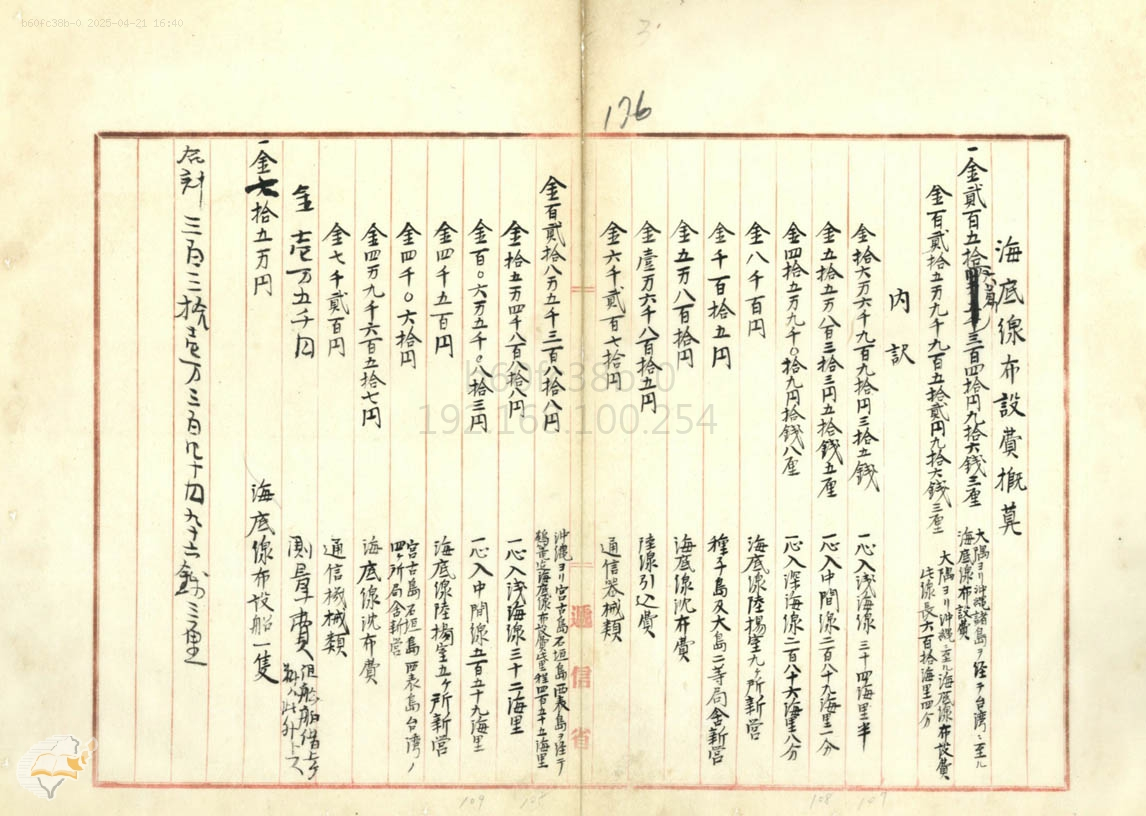 b60fc38b-0 2025-04-21 16:40
3
176
海底線布設費概算
一金貳百五拾六万三百四拾円九拾六銭三厘
大隅ヨリ沖縄諸島ヲ経テ台湾ニ至ル
海底線布設費
金百貳拾五万九千九百五拾貳円九拾六銭三厘
大隅ヨリ沖縄ニ至ル海底線布設費
此線長六百拾海里四分
内訳
金拾六万六千九百九拾円三拾五銭 一心入浅海線三十四海里半
金五拾五万八百三拾三円五拾銭五厘 一心入中間線二百八十九海里一分
金四拾五万九千〇拾九円拾銭八厘 一心入深海線二百八十六海里八分
金八千百円 海底線陸揚室九ヶ所新営
金千百拾五円 種子島及大島二等局舎新営
金五万八百拾円 海底線沈布費
金壹万六千八百拾五円 陸線引込費
金六千貳百七拾円 通信器械類
金百貳拾八万五千三百八拾八円
沖縄ヨリ宮古島石垣島西表島ヲ経テ
海底線布設費此里程四百五十五海里
金拾五万四千八百八拾八円 一心入浅海線三十二海里
金百〇六万五千〇八拾三円 一心入中間線五百五十九海里
金四千五百円 海底線陸揚室五ヶ所新営
金四千〇六拾円
宮古島石垣島西表島台湾ノ
四ヶ所局舎新営
金四万九千六百五拾七円 海底線沈布費
金七千貳百円 通信機械類
金壱万五千円 測量費
一金七拾五万円 海底線布設船一隻
合計三百三拾壱万三百四十円九十六銭三厘
逓信省
b60fc38b-0
192.168.100.254
109
108
108
107